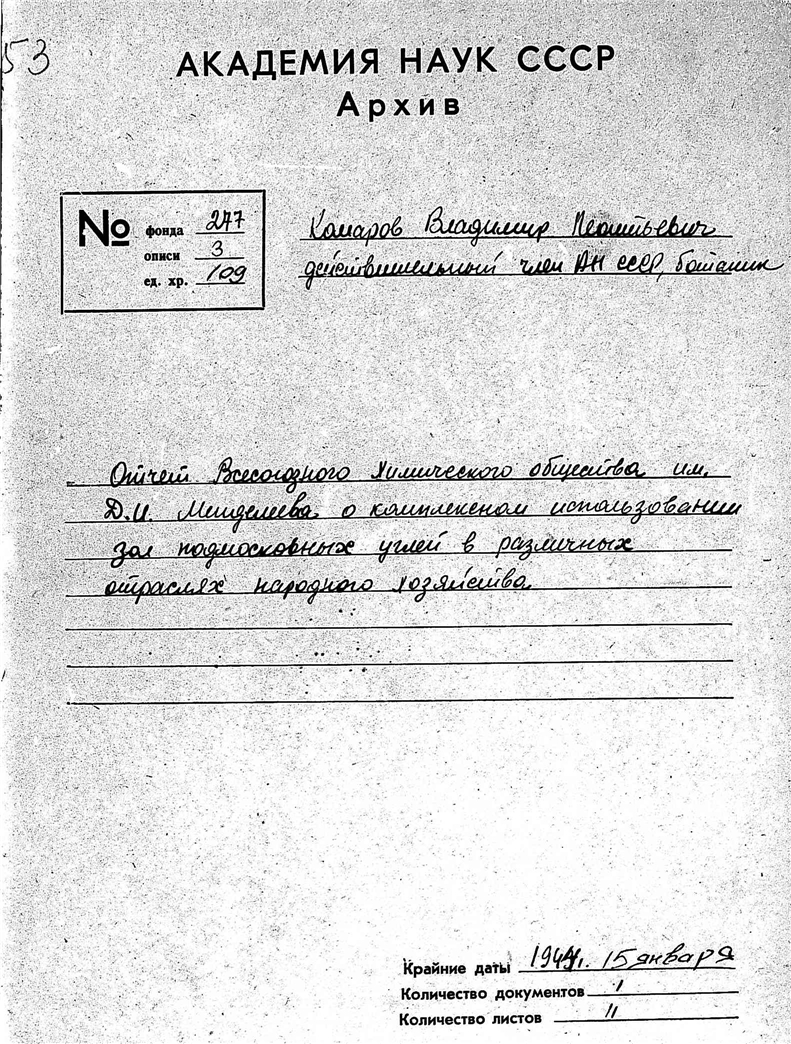 53
АКАДЕМИЯ НАУК СССР
Архив
№ фонда 277
описи 3
ед. хр. 109
Комаров Владимир Леонтьевич
действительный член АН СССР, ботаник
Отчет Всесоюзного Химического общества им.
Д.И. Менделеева о комплексном использовании
зол подмосковных углей в различных
отраслях народного хозяйства
Крайние даты 1944г. 15 января
Количество документов 1
Количество листов 11